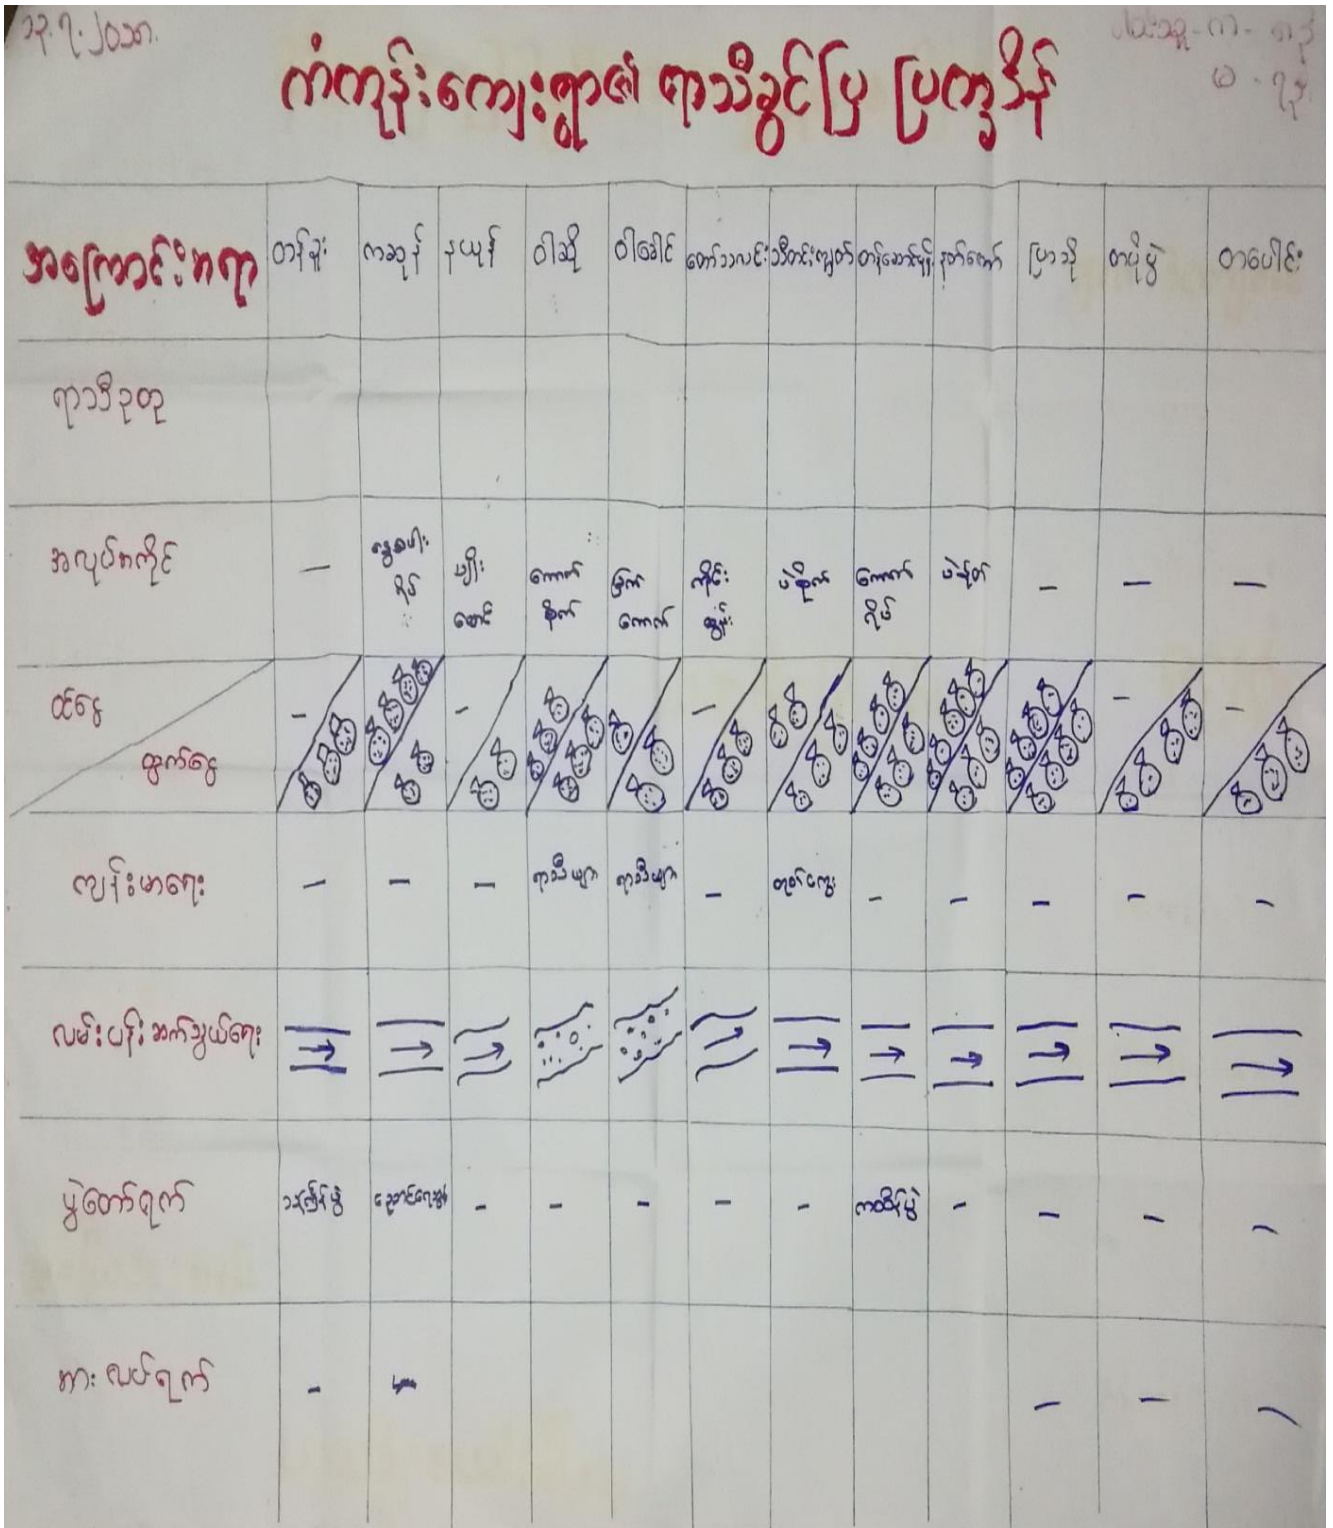 ၁၃.၇.၂၀၁၈.
ကံကုန်းကျေးရွာ၏ ရာသီခွင်ပြ ပြက္ခဒိန်
အကြောင်းအရာ တန်ခူး ကဆုန် နယုန် ဝါဆို ဝါခေါင် တော်သလင်း သီတင်းကျွတ် တန်ဆောင်မုန်း နတ်တော် ပြာသို တပို့တွဲ တပေါင်း
ရာသီဥတု
အလုပ်အကိုင် — နွေစပါး မျိုး ကောက် မြက် ကိုင်း ပဲစိုက် ကောက် ပဲနုတ် — — —
ရိတ် ထောင် စိုက် ကောက် ထွန်း ရိတ်
ဝင်ငွေ - - - - -
ထွက်ငွေ
ကျန်းမာရေး - - - ရာသီဖျား ရာသီဖျား - တုတ်ကွေး - - - - -
လမ်းပန်းဆက်သွယ်ရေး
ပွဲတော်ရက် သင်္ကြန်ပွဲ ညောင်ရေသွန်း - - - - - ကထိန်ပွဲ - - - -
အားလပ်ရက် - - - - -